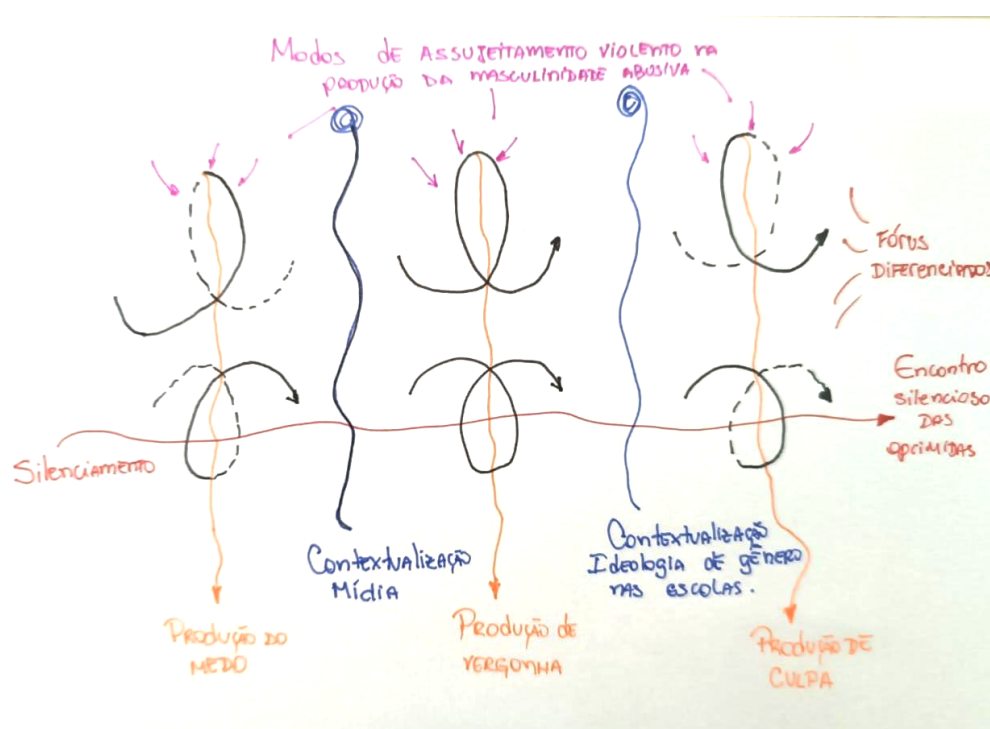 Modos de ASSUJEITAMENTO VIOLENTO NA
PRODUÇÃO DA MASCULINIDADE ABUSIVA
FÓRUS
DIFERENCIADOS
Encontro
silencioso
DAS
OPCIMIDAS
Silenciamento
Contextualização
Mídia
Contextualização
Ideologia de gênero
nas escolas.
PRODUÇÃO DO
MEDO
PRODUÇÃO DE
VERGONHA
PRODUÇÃO DE
CULPA